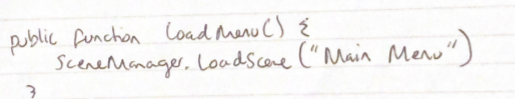 public function LoadMenu() {
SceneManager.LoadScene ("Main Menu")
}